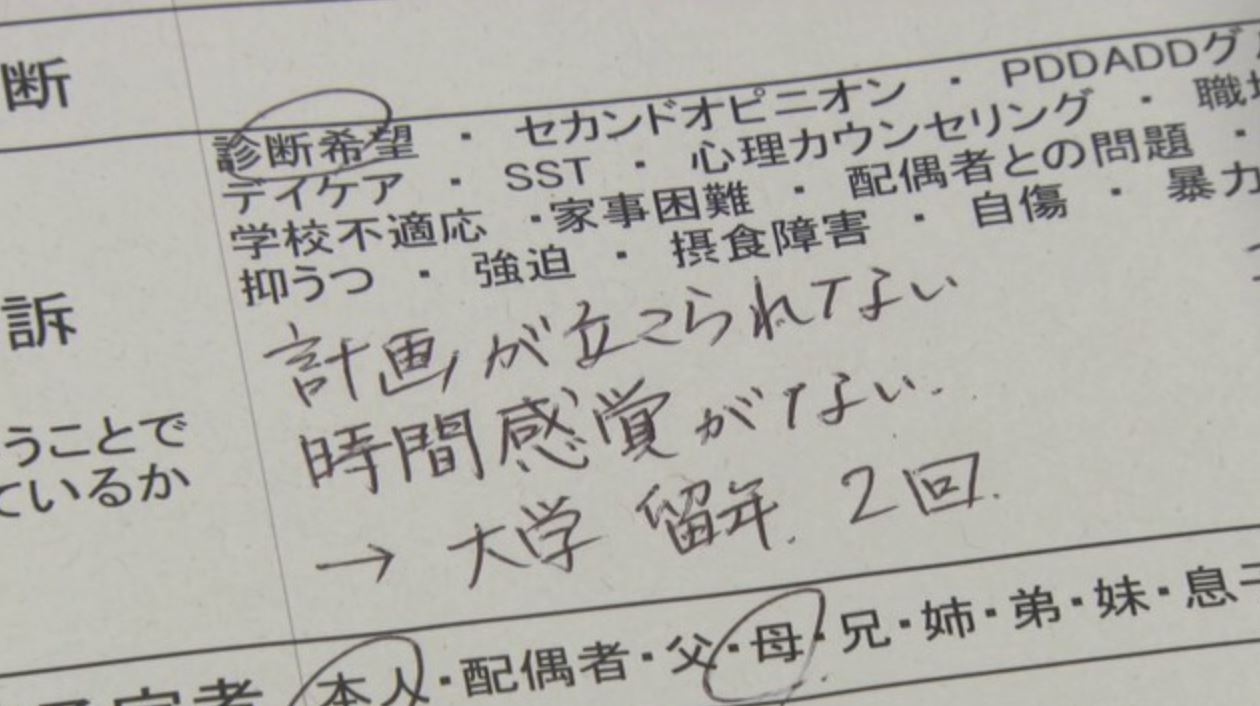 断
診断希望 ・ セカンドオピニオン ・ PDDADDグ
デイケア ・ SST ・ 心理カウンセリング ・ 職場
学校不適応 ・家事困難 ・ 配偶者との問題 ・
抑うつ ・ 強迫 ・ 摂食障害 ・ 自傷 ・ 暴力
訴
うことで
ているか
計画が立てられてない
時間感覚がない.
→ 大学 留年. 2回.
定者
本人・配偶者・父・母・兄・姉・弟・妹・息子